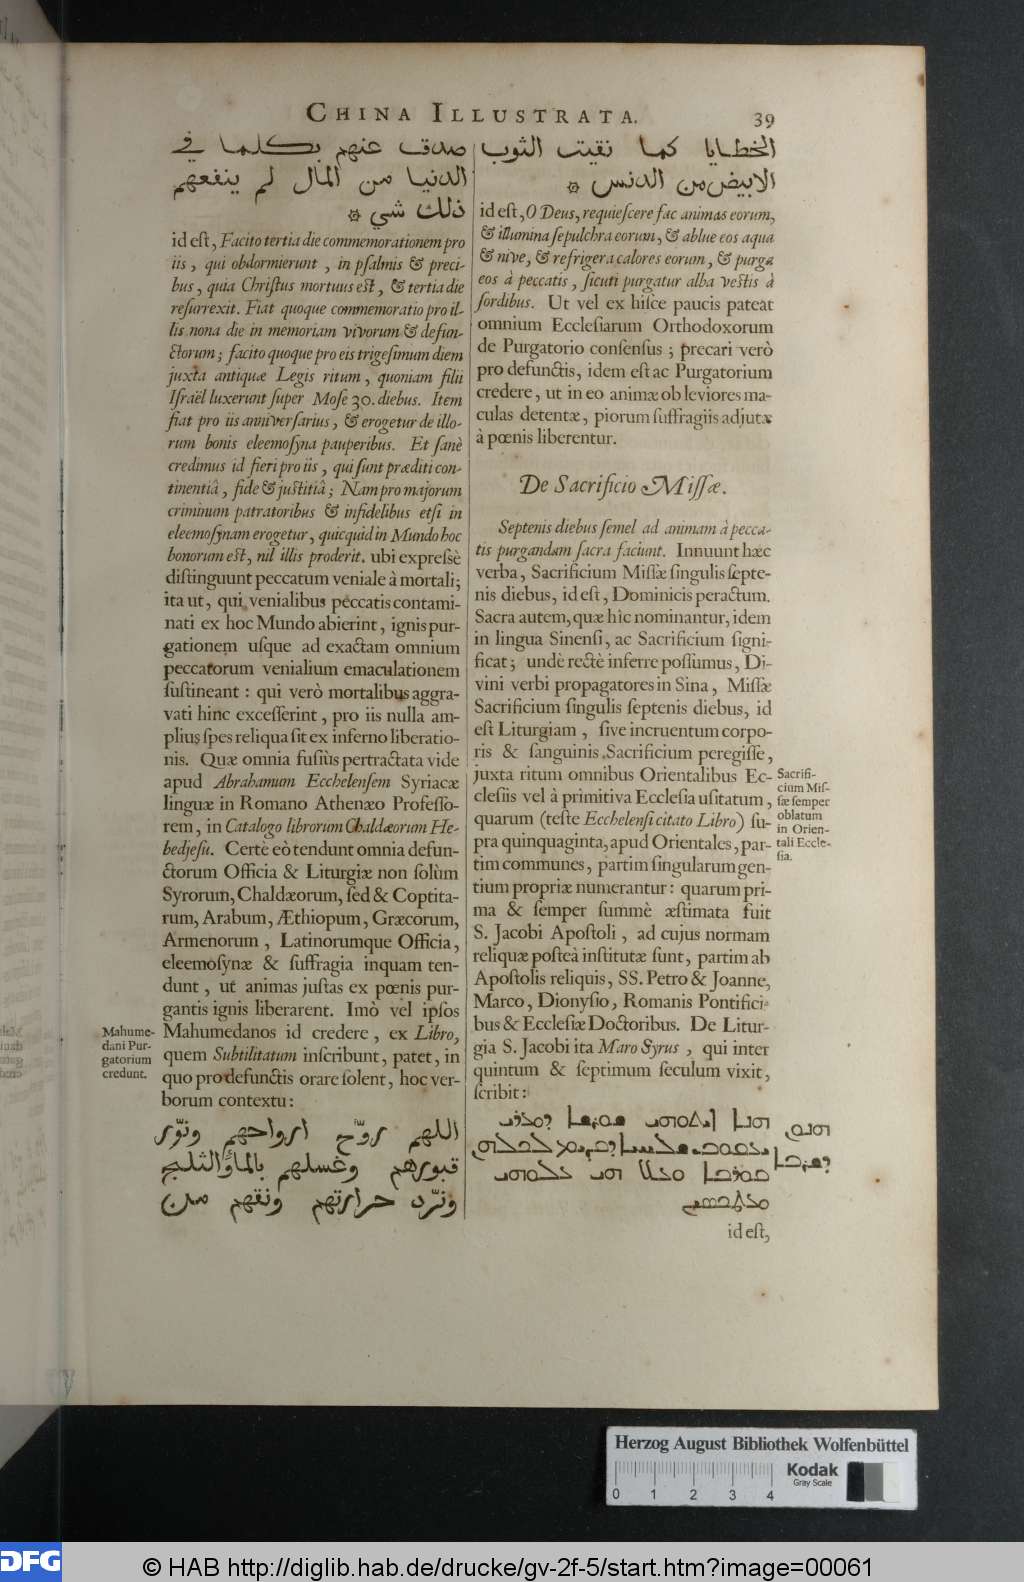 CHINA ILLUSTRATA.
39
صدق عنهم بكلما في
الدنيا من المال لم ينفعهم
ذلك شي ۞
id eſt, Facito tertia die commemorationem pro
iis, qui obdormierunt, in pſalmis & preci-
bus, quia Chriſtus mortuus eſt, & tertia die
reſurrexit. Fiat quoque commemoratio pro il-
lis nona die in memoriam vivorum & defun-
ctorum; facito quoque pro eis trigeſimum diem
juxta antiquæ Legis ritum, quoniam filii
Iſraël luxerunt ſuper Moſe 30. diebus. Item
fiat pro iis anniverſarius, & erogetur de illo-
rum bonis eleemoſyna pauperibus. Et ſanè
credimus id fieri pro iis, qui ſunt præditi con-
tinentiâ, fide & juſtitiâ; Nam pro majorum
criminum patratoribus & infidelibus etſi in
eleemoſynam erogetur, quicquid in Mundo hoc
bonorum eſt, nil illis proderit. ubi expreſsè
diſtinguunt peccatum veniale à mortali;
ita ut, qui venialibus peccatis contami-
nati ex hoc Mundo abierint, ignis pur-
gationem uſque ad exactam omnium
peccatorum venialium emaculationem
ſuſtineant: qui verò mortalibus aggra-
vati hinc exceſſerint, pro iis nulla am-
plius ſpes reliqua ſit ex inferno liberatio-
nis. Quæ omnia fuſiùs pertractata vide
apud Abrahamum Ecchelenſem Syriacæ
linguæ in Romano Athenæo Profeſſo-
rem, in Catalogo librorum Chaldæorum He-
bedjeſu. Certè eò tendunt omnia defun-
ctorum Officia & Liturgiæ non ſolùm
Syrorum, Chaldæorum, ſed & Coptita-
rum, Arabum, Æthiopum, Græcorum,
Armenorum, Latinorumque Officia,
eleemoſynæ & ſuffragia inquam ten-
dunt, ut animas juſtas ex pœnis pur-
gantis ignis liberarent. Imò vel ipſos
Mahumedanos id credere, ex Libro,
quem Subtilitatum inſcribunt, patet, in
quo pro defunctis orare ſolent, hoc ver-
borum contextu:
Mahume-
dani Pur-
gatorium
credunt.
اللهم روّح ارواحهم ونوّر
قبورهم وغسلهم بالماوالثلج
وبرّد حرارتهم ونقهم من
الخطايا كما نقيت الثوب
الابيض من الدنس ۞
id eſt, O Deus, requieſcere fac animas eorum,
& illumina ſepulchra eorum, & ablue eos aqua
& nive, & refrigera calores eorum, & purga
eos à peccatis, ſicuti purgatur alba veſtis à
ſordibus. Ut vel ex hiſce paucis pateat
omnium Eccleſiarum Orthodoxorum
de Purgatorio conſenſus; precari verò
pro defunctis, idem eſt ac Purgatorium
credere, ut in eo animæ ob leviores ma-
culas detentæ, piorum ſuffragiis adjutæ
à pœnis liberentur.
De Sacrificio Miſſæ.
Septenis diebus ſemel ad animam à pecca-
tis purgandam ſacra faciunt. Innuunt hæc
verba, Sacrificium Miſſæ ſingulis ſepte-
nis diebus, id eſt, Dominicis peractum.
Sacra autem, quæ hìc nominantur, idem
in lingua Sinenſi, ac Sacrificium ſigni-
ficat; undè rectè inferre poſſumus, Di-
vini verbi propagatores in Sina, Miſſæ
Sacrificium ſingulis ſeptenis diebus, id
eſt Liturgiam, ſive incruentum corpo-
ris & ſanguinis Sacrificium peregiſſe,
juxta ritum omnibus Orientalibus Ec-
cleſiis vel à primitiva Eccleſia uſitatum,
quarum (teſte Ecchelenſi citato Libro) ſu-
pra quinquaginta, apud Orientales, par-
tim communes, partim ſingularum gen-
tium propriæ numerantur: quarum pri-
ma & ſemper ſummè æſtimata fuit
S. Jacobi Apoſtoli, ad cujus normam
reliquæ poſteà inſtitutæ ſunt, partim ab
Apoſtolis reliquis, SS. Petro & Joanne,
Marco, Dionyſio, Romanis Pontifici-
bus & Eccleſiæ Doctoribus. De Litur-
gia S. Jacobi ita Maro Syrus, qui inter
quintum & ſeptimum ſeculum vixit,
ſcribit:
Sacrifi-
cium Miſ-
ſæ ſemper
oblatum
in Orien-
tali Eccle-
ſia.
id eſt,
Herzog August Bibliothek Wolfenbüttel
0 1 2 3 4
Kodak
Gray Scale
DFG
© HAB http://diglib.hab.de/drucke/gv-2f-5/start.htm?image=00061